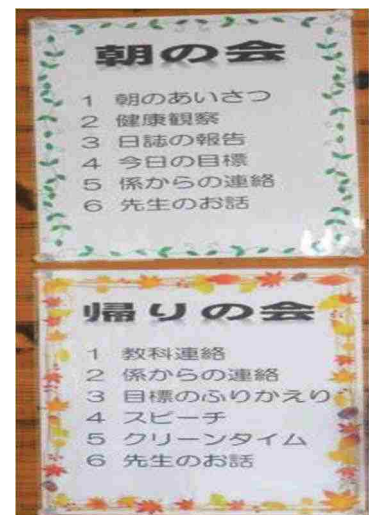 朝の会
1 朝のあいさつ
2 健康観察
3 日誌の報告
4 今日の目標
5 係からの連絡
6 先生のお話
帰りの会
1 教科連絡
2 係からの連絡
3 目標のふりかえり
4 スピーチ
5 クリーンタイム
6 先生のお話